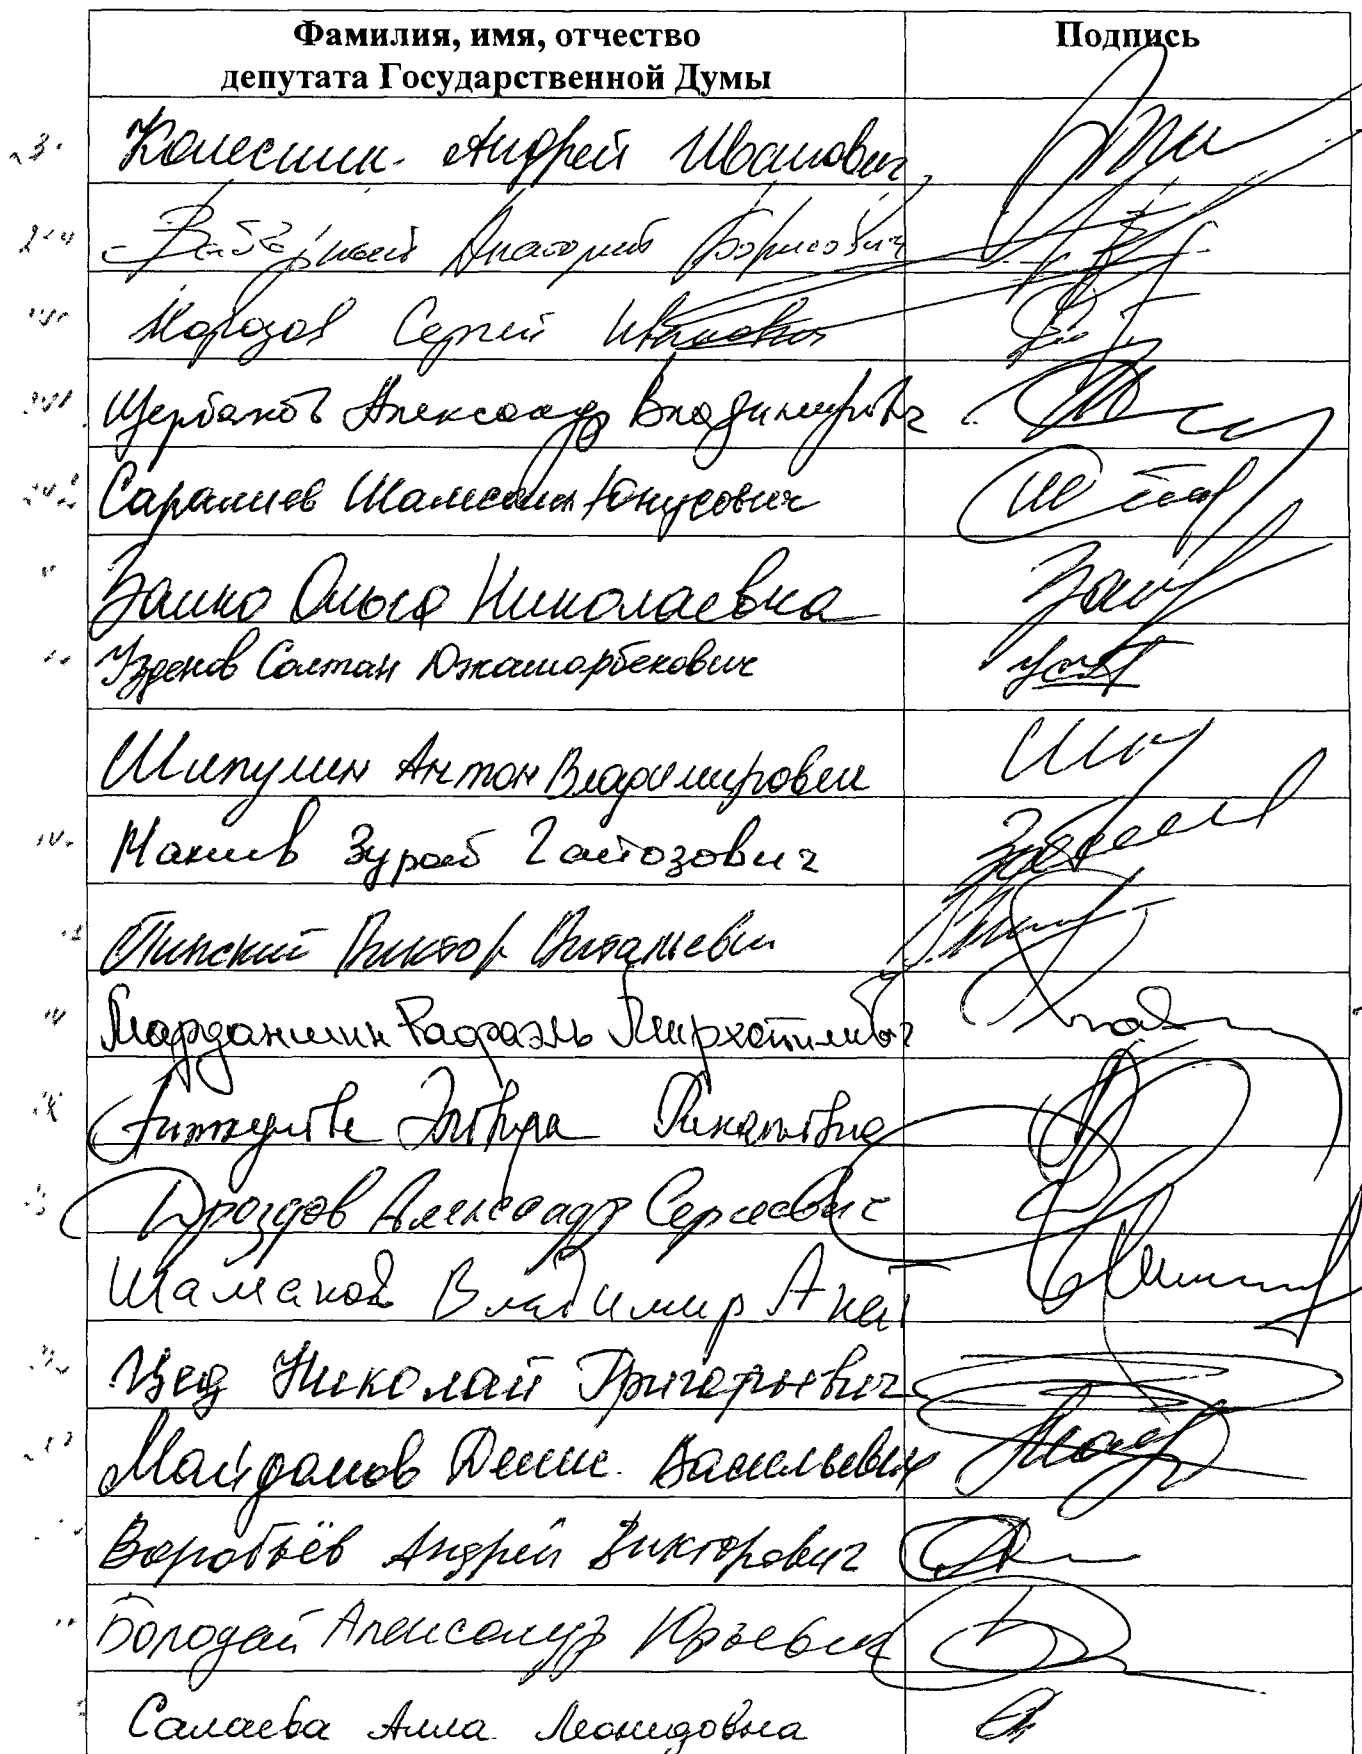 Фамилия, имя, отчество
депутата Государственной Думы
Подпись
Колесник Андрей Иванович
Выборный Анатолий Борисович
Морозов Сергей Иванович
Щербаков Александр Владимирович
Саралиев Шамсаил Юнусович
Занко Ольга Николаевна
Узденов Солтан Джашарбекович
Шипулин Антон Владимирович
Макиев Зураб Гайозович
Пинский Виктор Витальевич
Марданшин Рафаэль Мирхатимович
Аиткулова Эльвира Ринатовна
Дроздов Александр Сергеевич
Шаманов Владимир Анат
Цед Николай Григорьевич
Майданов Денис Васильевич
Воробьёв Андрей Викторович
Бородай Александр Юрьевич
Салаева Алла Леонидовна